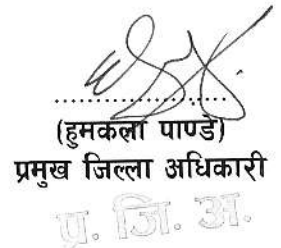 (हुमकला पाण्डे)
प्रमुख जिल्ला अधिकारी
प्र. जि. अ.